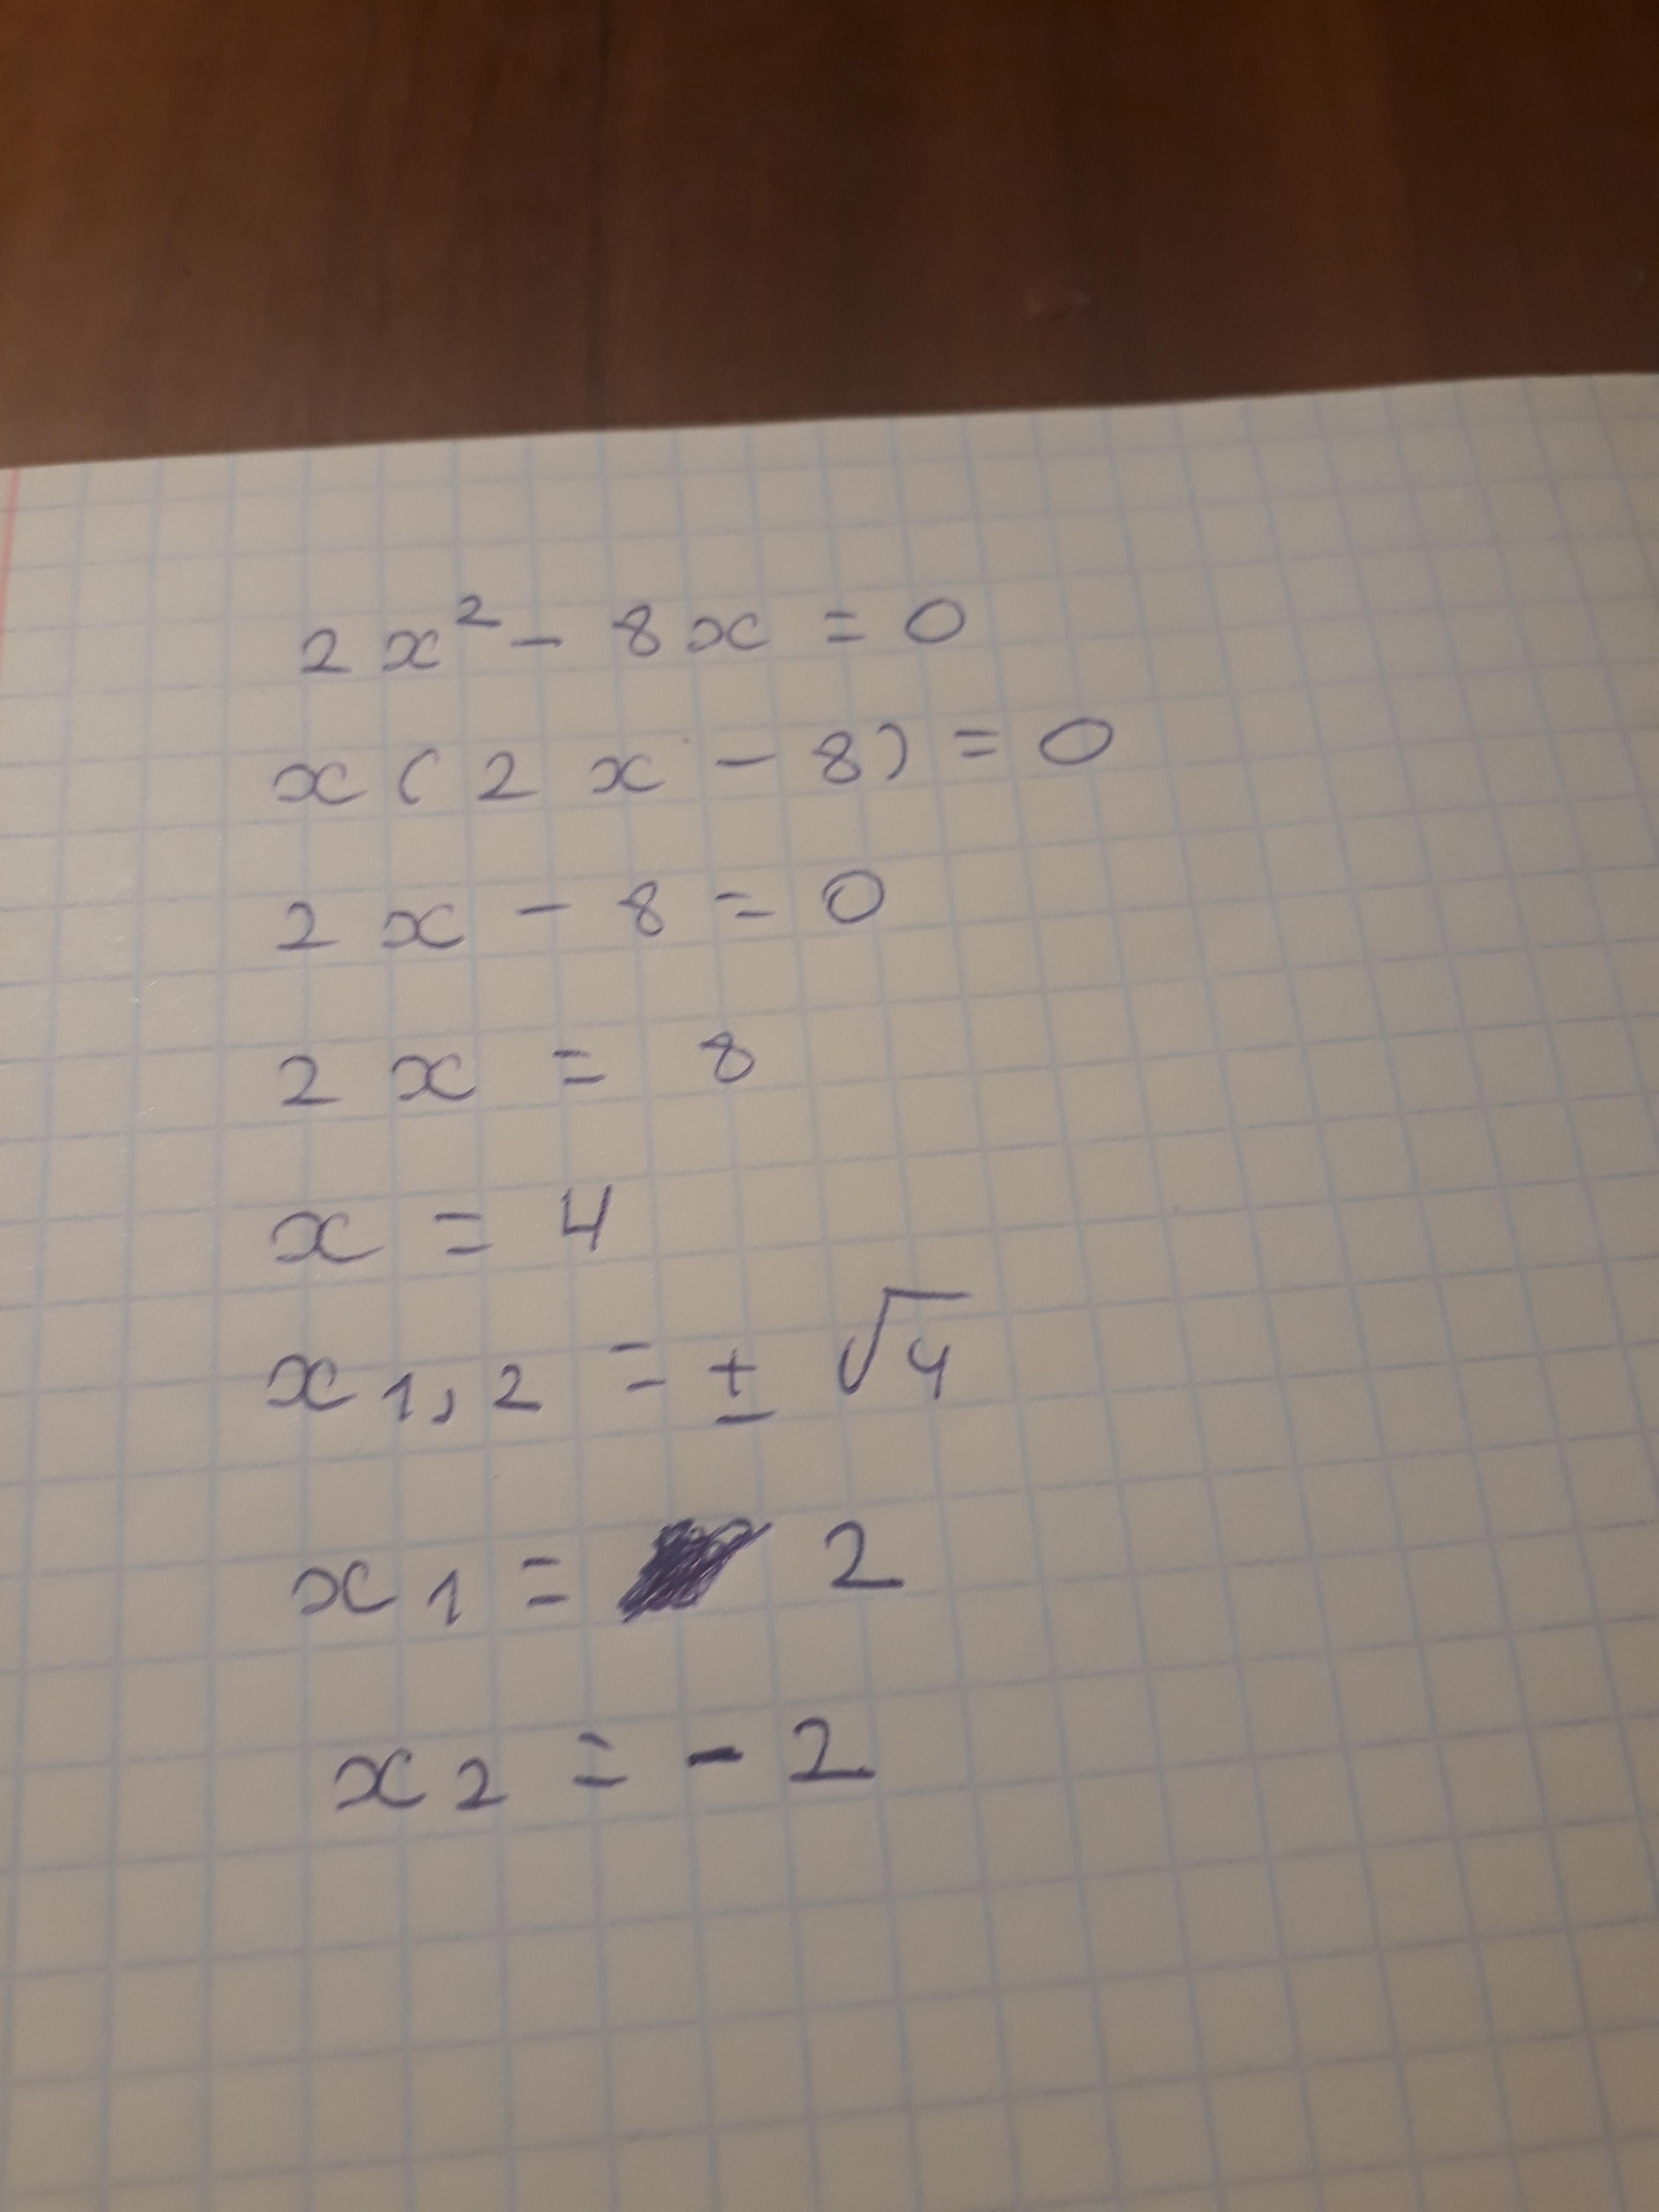 2x² - 8x = 0
x(2x - 8) = 0
2x - 8 = 0
2x = 8
x = 4
x₁,₂ = ± √4
x₁ = 2
x₂ = - 2